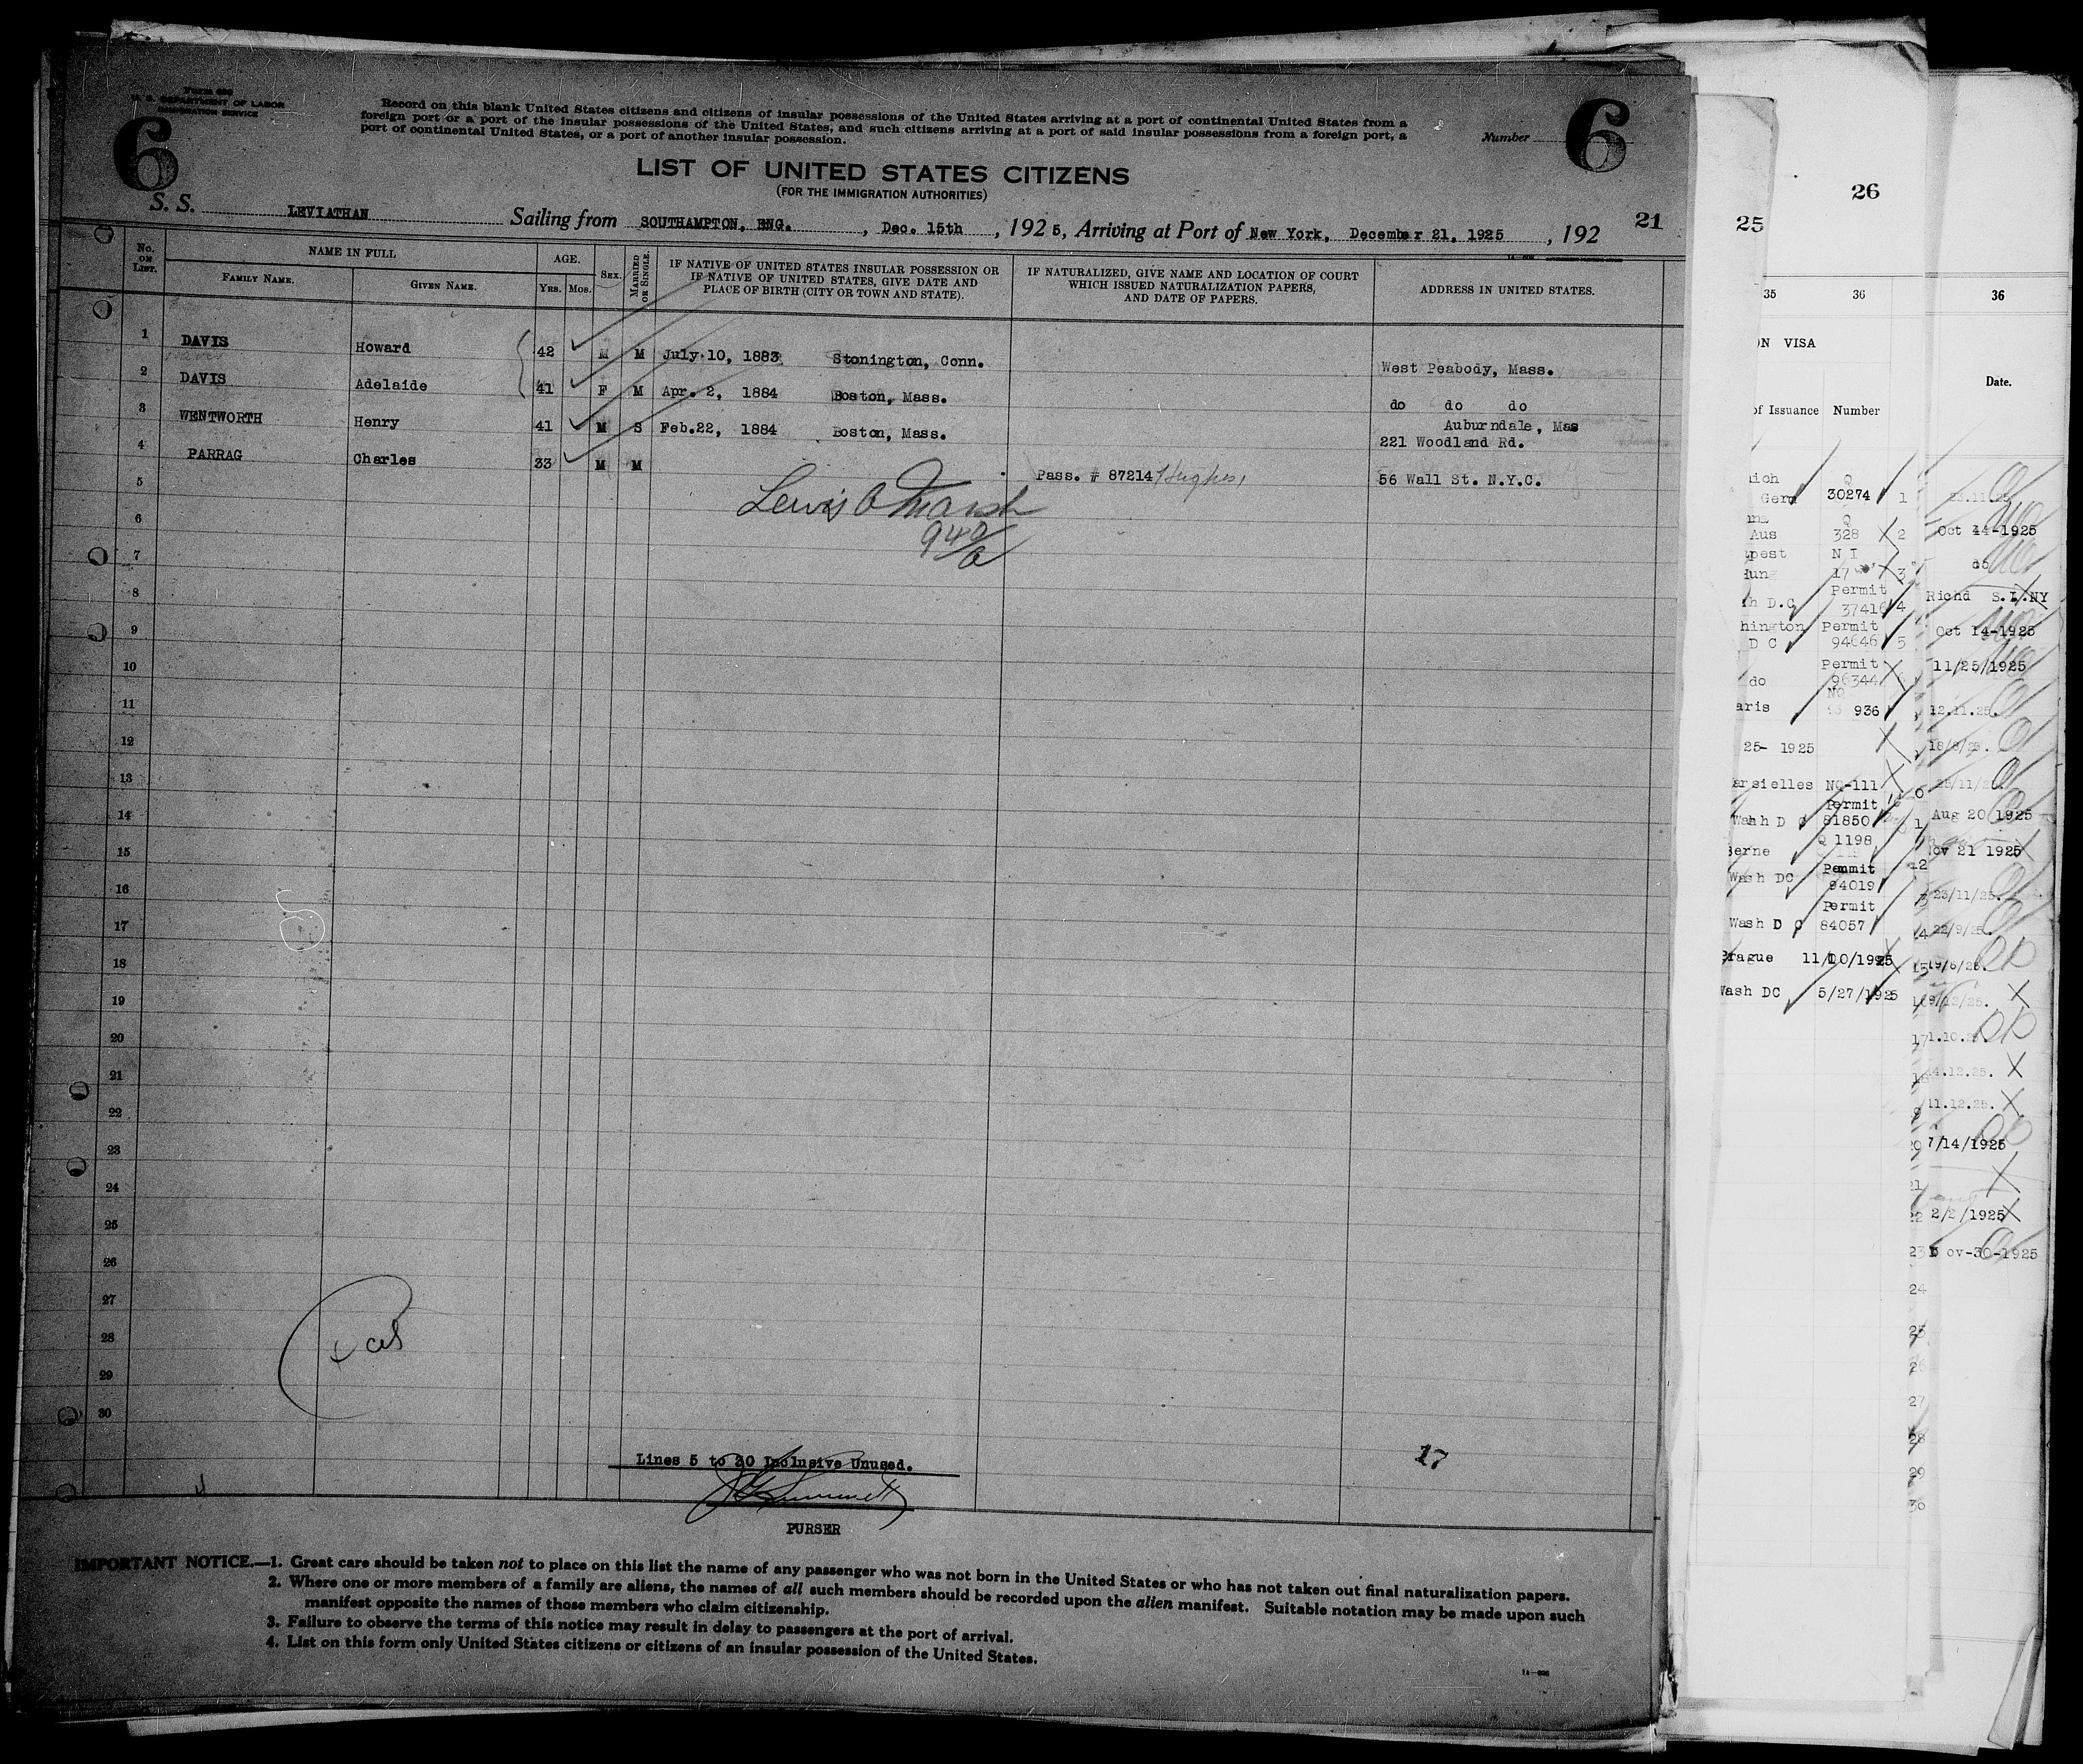 Form 630
U. S. DEPARTMENT OF LABOR
IMMIGRATION SERVICE
6
Record on this blank United States citizens and citizens of insular possessions of the United States arriving at a port of continental United States from a
foreign port or a port of the insular possessions of the United States, and such citizens arriving at a port of said insular possessions from a foreign port, a
port of continental United States, or a port of another insular possession.
Number
6
LIST OF UNITED STATES CITIZENS
(FOR THE IMMIGRATION AUTHORITIES)
S. S. LEVIATHAN Sailing from SOUTHAMPTON, ENG. , Dec. 15th , 192 5, Arriving at Port of New York, December 21, 1925 , 192
21
No. ON LIST.
NAME IN FULL
FAMILY NAME.
GIVEN NAME.
AGE.
YRS. MOS.
SEX.
MARRIED OR SINGLE.
IF NATIVE OF UNITED STATES INSULAR POSSESSION OR
IF NATIVE OF UNITED STATES, GIVE DATE AND
PLACE OF BIRTH (CITY OR TOWN AND STATE).
IF NATURALIZED, GIVE NAME AND LOCATION OF COURT
WHICH ISSUED NATURALIZATION PAPERS,
AND DATE OF PAPERS.
ADDRESS IN UNITED STATES.
1 DAVIS Howard 42 M M July 10, 1883 Stonington, Conn. West Peabody, Mass.
2 DAVIS Adelaide 41 F M Apr. 2, 1884 Boston, Mass. do do do
3 WENTWORTH Henry 41 M S Feb.22, 1884 Boston, Mass. Auburndale, Mas
221 Woodland Rd.
4 PARRAG Charles 33 M M Pass. # 87214 Hughes, 56 Wall St. N.Y.C.
5
Lewis A Marsh
6
940/a
7
8
9
10
11
12
13
14
15
16
17
18
19
20
21
22
23
24
25
26
27
28
29
30
Lines 5 to 30 Inclusive Unused.
17
PURSER
IMPORTANT NOTICE.—1. Great care should be taken not to place on this list the name of any passenger who was not born in the United States or who has not taken out final naturalization papers.
2. Where one or more members of a family are aliens, the names of all such members should be recorded upon the alien manifest. Suitable notation may be made upon such
manifest opposite the names of those members who claim citizenship.
3. Failure to observe the terms of this notice may result in delay to passengers at the port of arrival.
4. List on this form only United States citizens or citizens of an insular possession of the United States.
25
35 36
ON VISA
of Issuance Number
Germ 30274
Aus 328
pest N I
Hung 17
h D.C Permit
37416
hington Permit
D C 94646
Permit
do 96344
aris 936
25- 1925
arsielles NQ-111
Permit
Wash D C 81850
Q 1198
Berne
Permit
Wash DC 94019
Permit
Wash D C 84057
Prague 11/10/1925
Wash DC 5/27/1925
26
36
Date.
Oct 14-1925
Richd S.I.NY
Oct 14-1925
11/25/1925
12.11.25.
Aug 20 1925
ov 21 1925
23/11/25.
22/9/25.
11.12.25.
7/14/1925
2/2/1925
ov-30-1925
24
27
29
30